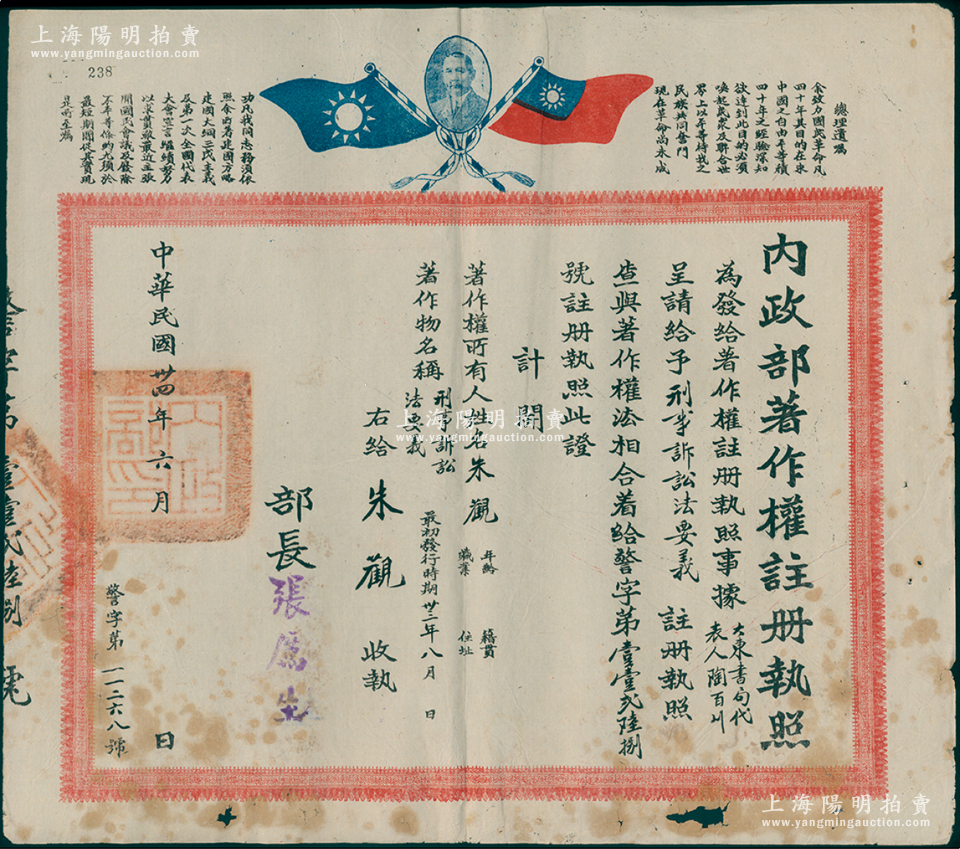 上海陽明拍賣
www.yangmingauction.com
238
總理遺囑
余致力國民革命凡
四十年其目的在求
中國之自由平等積
四十年之經驗深知
欲達到此目的必須
喚起民眾及聯合世
界上以平等待我之
民族共同奮鬥
現在革命尚未成
功凡我同志務須依
照余所著建國方略
建國大綱三民主義
及第一次全國代表
大會宣言繼續努力
以求貫徹最近主張
開國民會議及廢除
不平等條約尤須於
最短期間促其實現
是所至囑
內政部著作權註册執照
為發給著作權註册執照事據大東書局代表人陶百川
呈請給予刑事訴訟法要義 註册執照
查與著作權法相合着給警字第壹壹貳陸捌
號註册執照此證
計開
著作權所有人姓名朱觀 年齡 籍貫 職業 住址
著作物名稱刑事訴訟法要義 最初發行時期卅三年八月 日
右給 朱觀 收執
部長張厲生
中華民國卅四年六月 日
警字第一一二六八號
內政部印
警字第壹壹貳陸捌號
上海陽明拍賣
www.yangmingauction.com
上海陽明拍賣
www.yangmingauction.com